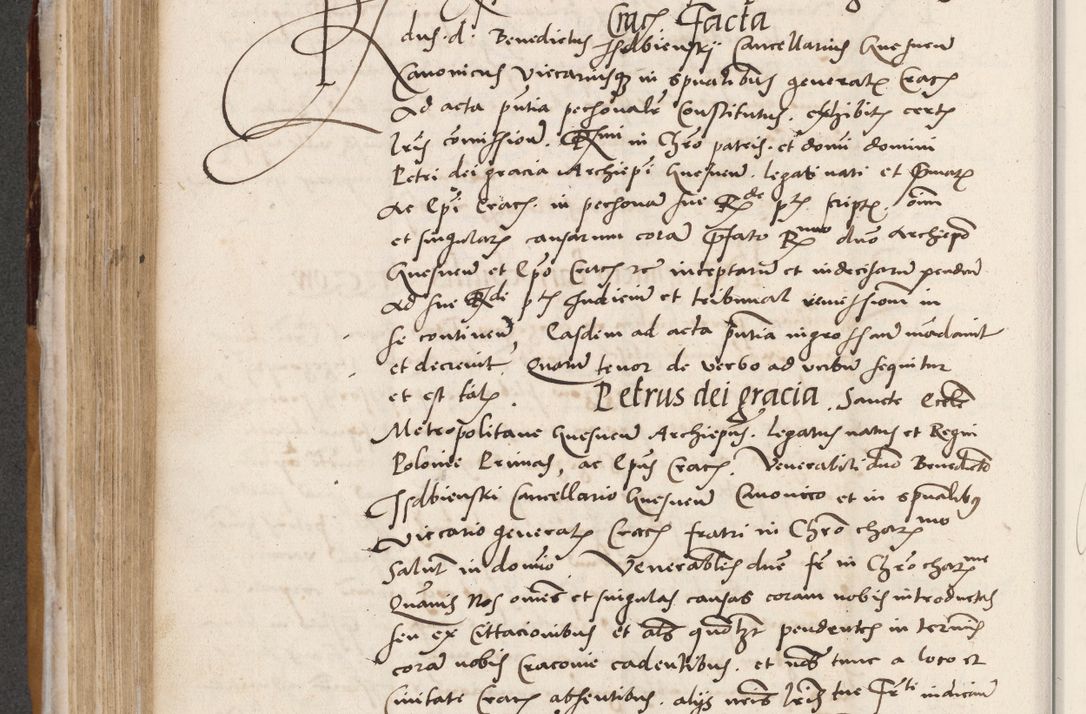 Crac̄ Facta
dns d. Benedictus Isdbienskj Cancellarius Gnesnen̄
Canonicus Viccariusq̢ in spūalibus generalꝫ Crac̄
Ad acta pn̄tia personalr̄ Constitutus, exhibitꝫ certꝫ
lrīs com̄issionū. Rmi in Chrō patris et domī domini
Petri dei gracia Archiepī Gnesnen̄ legati nati et Pmatꝫ
Ac Epī Crac̄. in personam sue Rde ptꝫ scriptꝫ oīm
et singularꝫ causarum coram Pfato Rmo dnō Archiepō
Gnesnen̄ et Epō Crac̄ rc̄ inceptarū et indecisarū penden̄
Ad sue Rde ptꝫ Judiciū et tribunal remissionē in
se continen̄, Easdem ad acta pn̄tia ingrossari mādauit
et decreuit, Quarū tenor de verbo ad verbū sequitur
et est talꝫ. Petrus dei gracia, Sancte Ecclē
Metropolitane Gnesnen̄ Archiepūs, legatus natus et Regni
Polonie Primas, ac Epūs Crac̄. Venerabili dnō Benedicto
Isdbienski Cancellario Gnesnen̄ Canonico et in spūalibus
Viccario generalꝫ Crac̄ fratri in Chrō charꝫmo
Salutē in domīo Venerabilis dnē fr̄ in Chrō charꝫme
Quamuis Nos omnes et singulas causas coram nobis introductas
seu ex Cittacionibus et als̄ quōlꝫt pendentes in terminis
coram nobis Cracovie cadentibus, et nobis tunc a loco et
Ciuitate Crac̄ absentibus, alijs nris̄ lris̄ tue Frti indiciaū